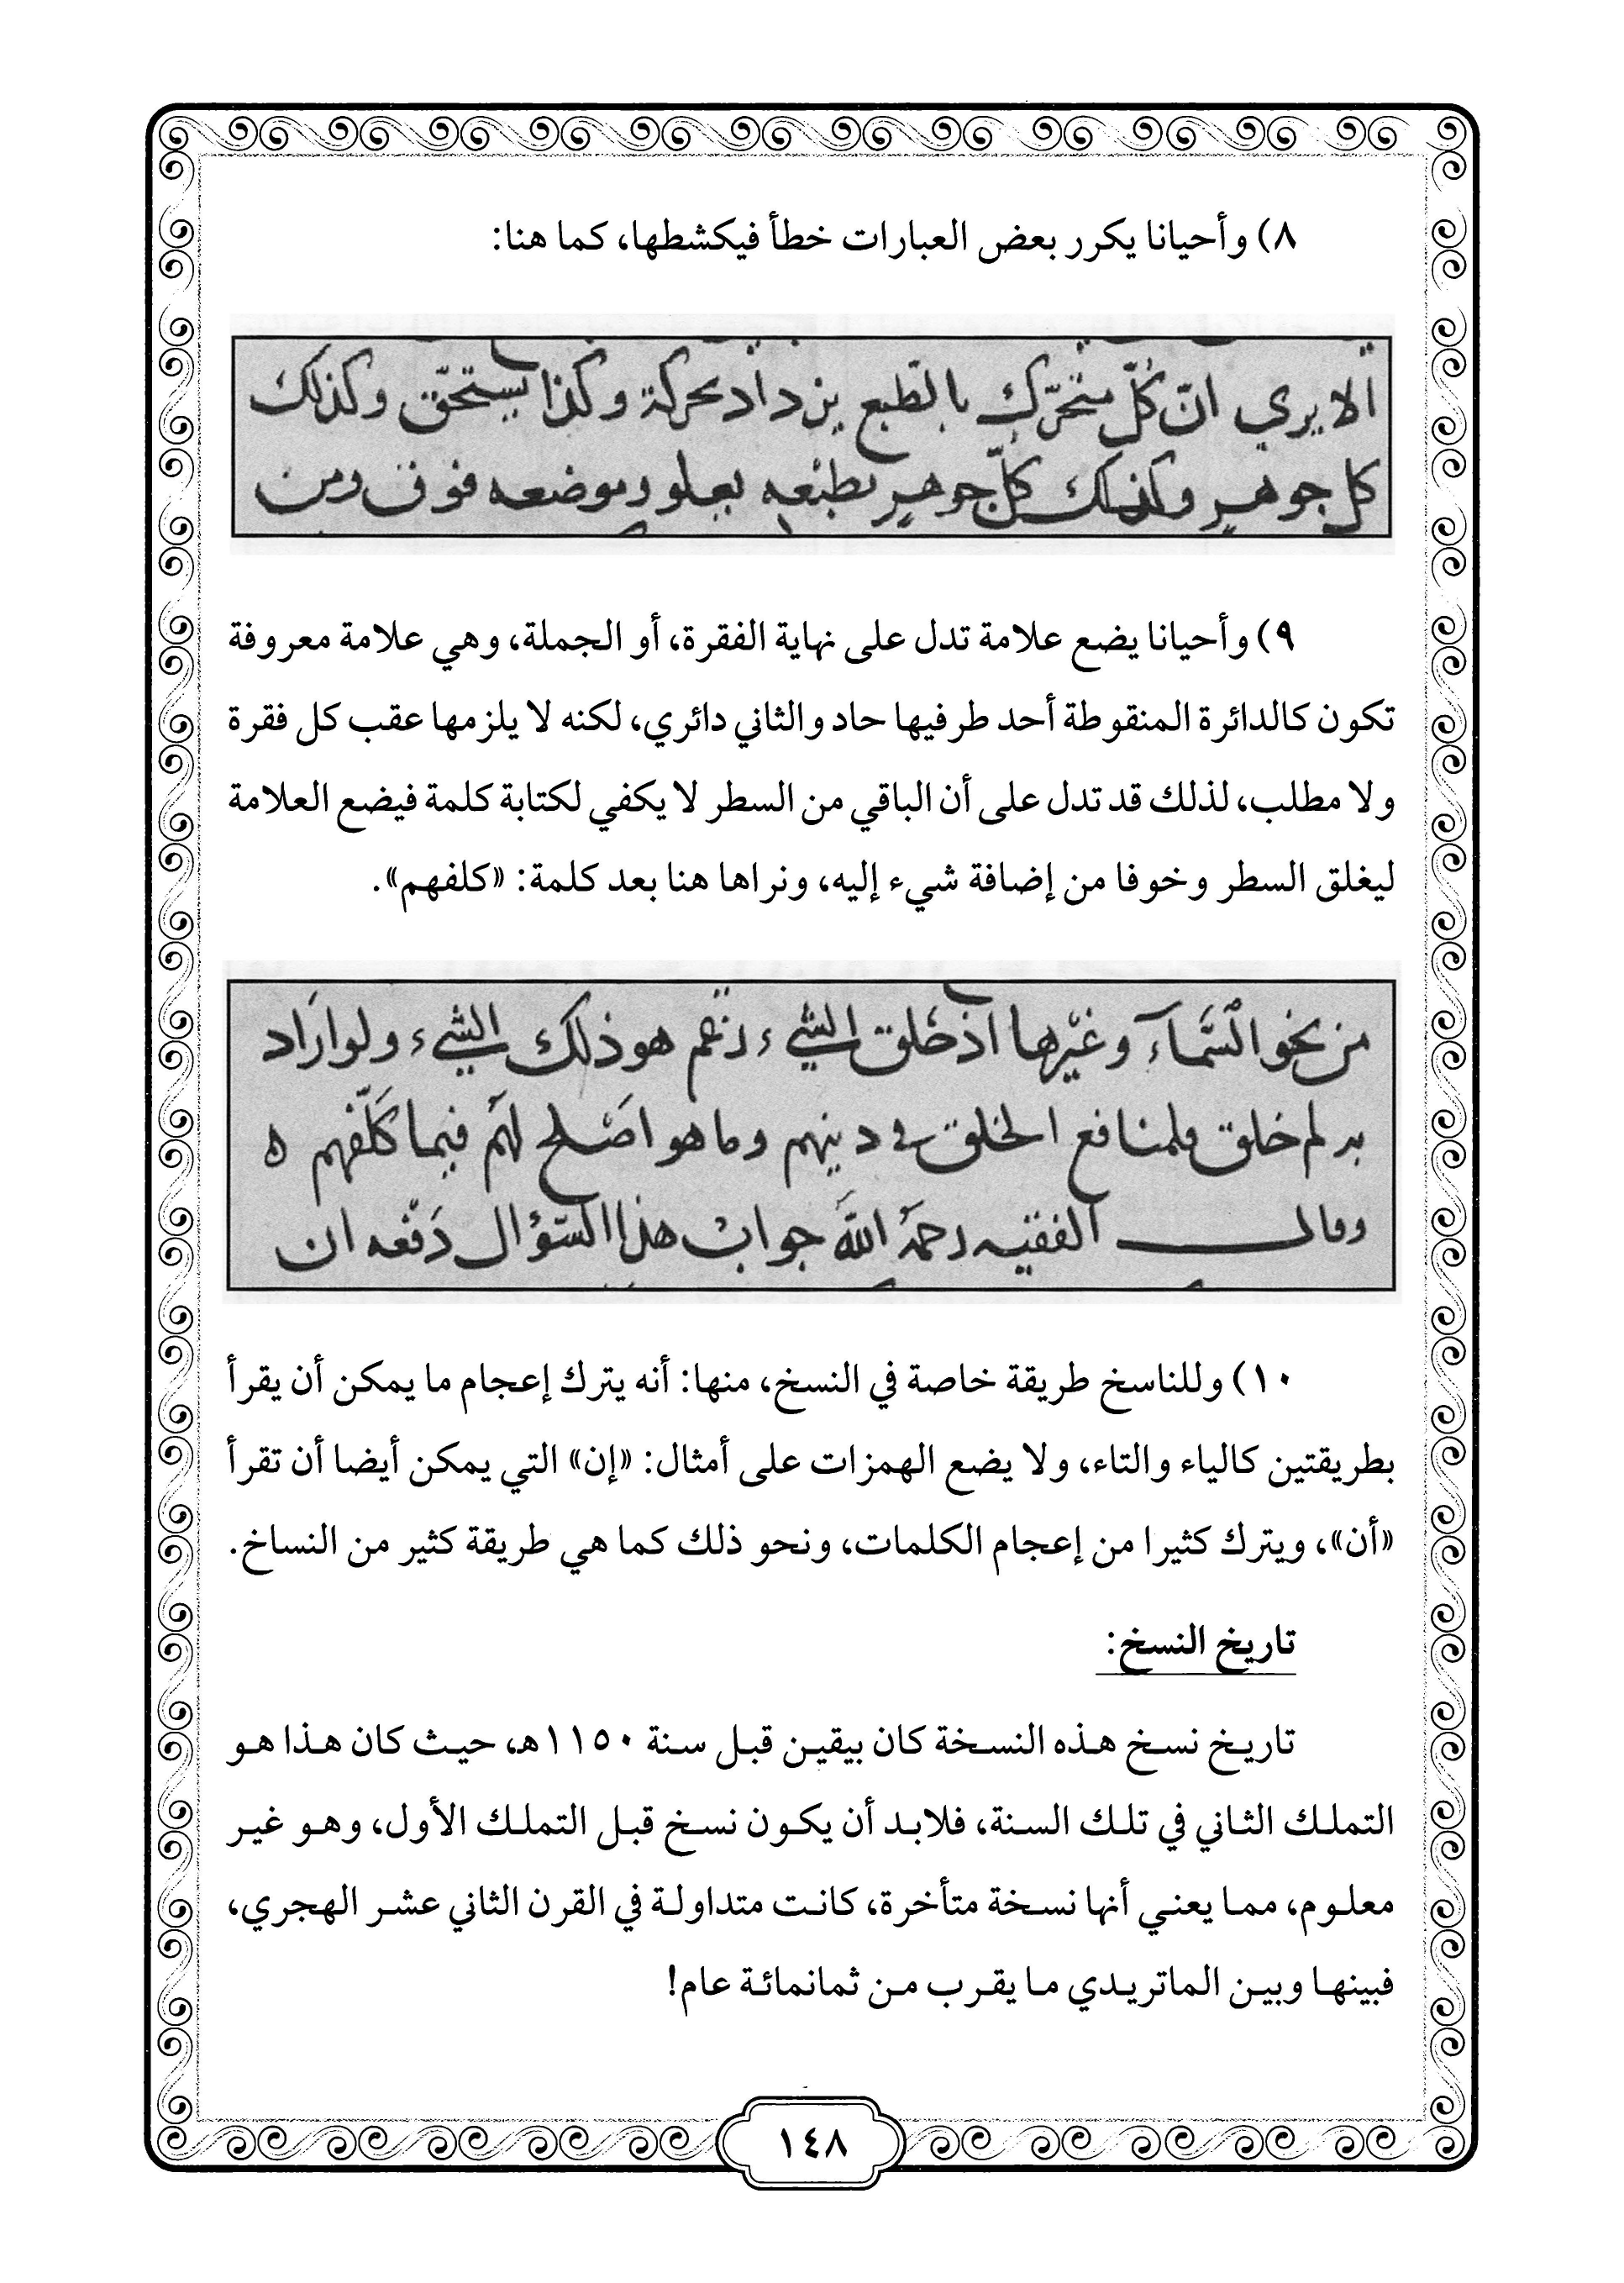 ٨) وأحيانا يكرر بعض العبارات خطأ فيكشطها، كما هنا:
الا يري ان كلّ متحرّك بالطبع يزداد بحركة وكذا يستحقّ وكذلك
كل جوهر وكذلك كلّ جوهر بطبعه يعلو وموضعه فوق ومن
٩) وأحيانا يضع علامة تدل على نهاية الفقرة، أو الجملة، وهي علامة معروفة
تكون كالدائرة المنقوطة أحد طرفيها حاد والثاني دائري، لكنه لا يلزمها عقب كل فقرة
ولا مطلب، لذلك قد تدل على أن الباقي من السطر لا يكفي لكتابة كلمة فيضع العلامة
ليغلق السطر وخوفا من إضافة شيء إليه، ونراها هنا بعد كلمة: «كلفهم».
من نحو السّمآء وغيرها اذ خلق الشيء زعم هو ذلك الشيء ولو اراد
به لم خلق فلمنافع الخلق في دينهم وما هو اصلح لهم فيما كلّفهم ه
وقال الفقيه رحمه الله جواب هذا السّؤال دفعه ان
١٠) وللناسخ طريقة خاصة في النسخ، منها: أنه يترك إعجام ما يمكن أن يقرأ
بطريقتين كالياء والتاء، ولا يضع الهمزات على أمثال: «إن» التي يمكن أيضا أن تقرأ
«أن»، ويترك كثيرا من إعجام الكلمات، ونحو ذلك كما هي طريقة كثير من النساخ.
تاريخ النسخ:
تاريخ نسخ هذه النسخة كان بيقين قبل سنة ١١٥٠هـ، حيث كان هذا هو
التملك الثاني في تلك السنة، فلابد أن يكون نسخ قبل التملك الأول، وهو غير
معلوم، مما يعني أنها نسخة متأخرة، كانت متداولة في القرن الثاني عشر الهجري،
فبينها وبين الماتريدي ما يقرب من ثمانمائة عام!
١٤٨